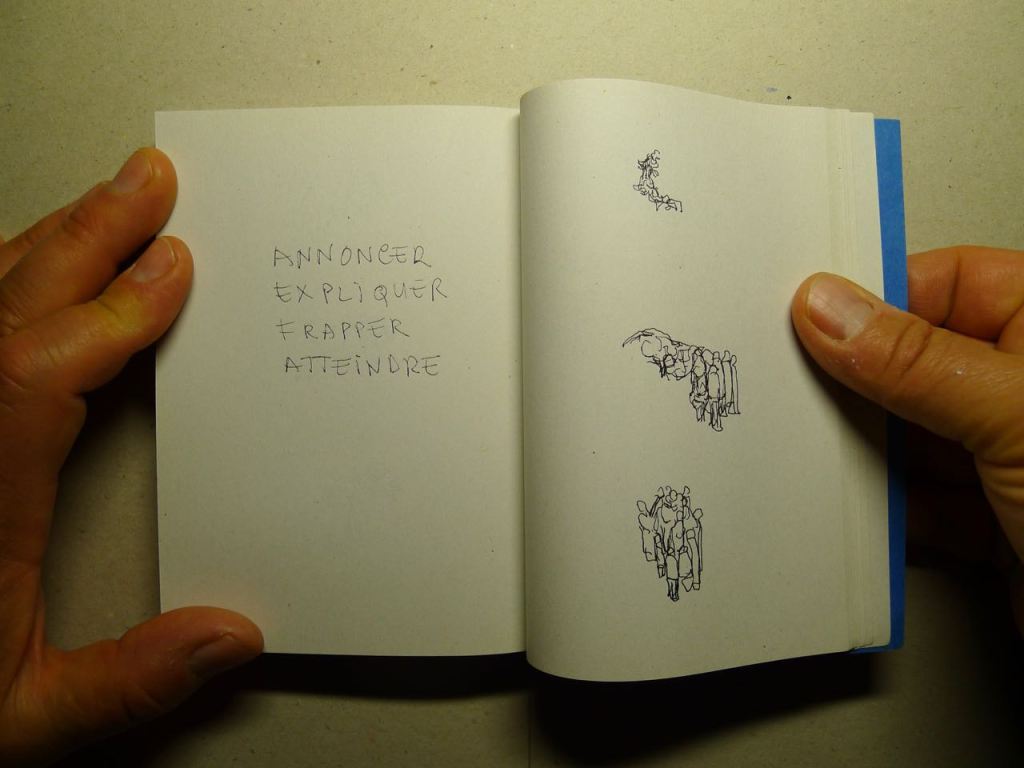 ANNONCER
EXPLIQUER
FRAPPER
ATTEINDRE